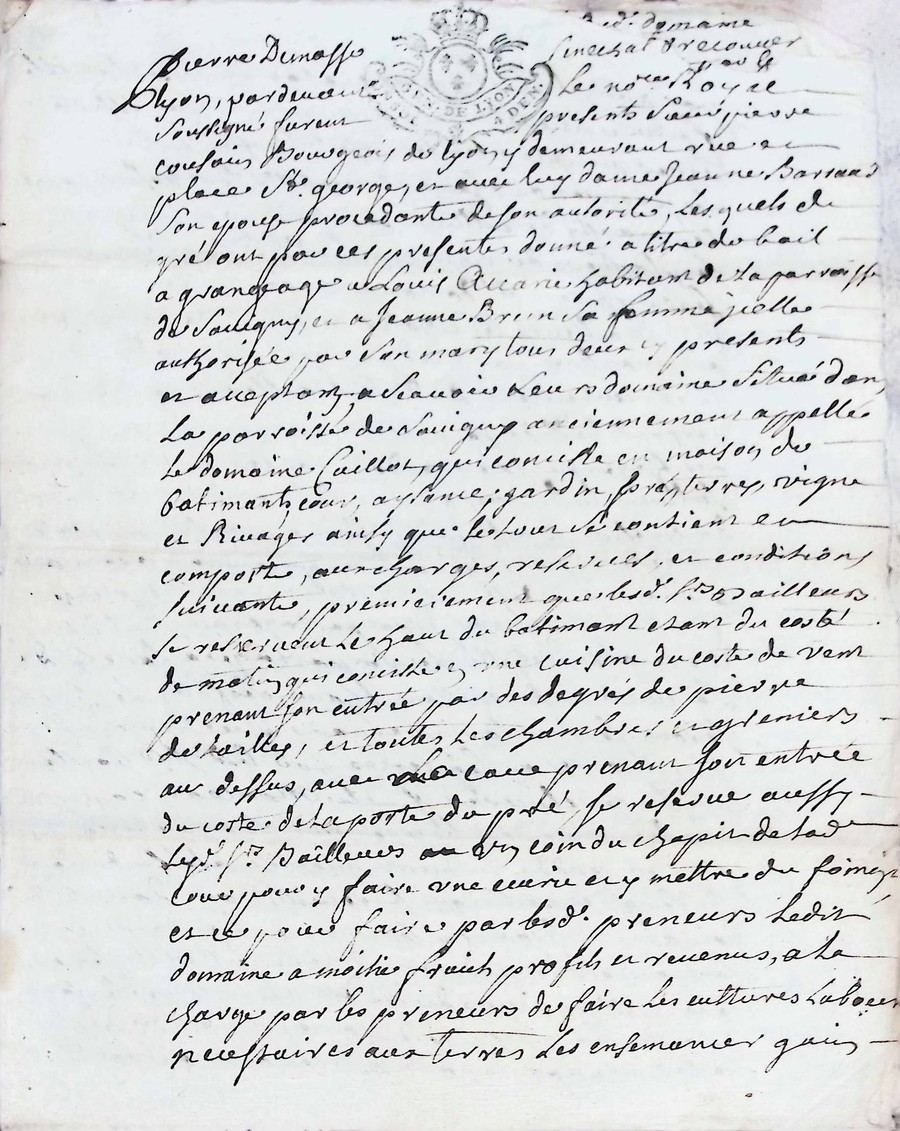 dt. domaine
Pierre Dumasse
Senechal & recouvrer
Lyon, pardevant Le nore. Royal
GEN. DE LYON
DEN
soussigné furent presents Sieur pierre
cousain Bourgeois de Lyon y demeurant rue et
place St. george, et avec luy dame Jeanne Barraud
son epouse procedante de son autorité, Les quels de
gré ont par ces presentes donné a titre de bail
a grangeage a Louis Accarie habitant de La parroisse
de Savigny, et a Jeanne Brun sa femme, jcelle
authorisée par son mary tous deux cy presents
et acceptant, a Scavoir Leurs domaine Situé dans
La parroisse de Savigny anciennement appellé
Le domaine Caillot, qui consiste en maison de
batimants, cour, aysance, jardin, prés, terres, vigne
et Rivages ainsy que Le tout se contient et
comporte, aux charges, reserves, et conditions
suivante, premierement que lesd. Srs Bailleurs
se reservent Le haut du batimant etant du costé
de matin qui consiste en une cuisine du coste de vent
prenant son entrée par des degrés de pierre
de taille, et toutes Les chambres et greniers
au dessus, avec une cave prenant son entrée
du coste de La porte du pré, se reserve aussy
Lesd. Srs Bailleurs un coin du chapit de Lade
cour pour y faire une ecurie et y mettre du foin
et ce pour faire par lesd. preneurs Ledit
domaine a moitié fruits profits et revenus, a La
charge par les preneurs de faire Les cultures Labours
necessaires aux terres Les ensemancer